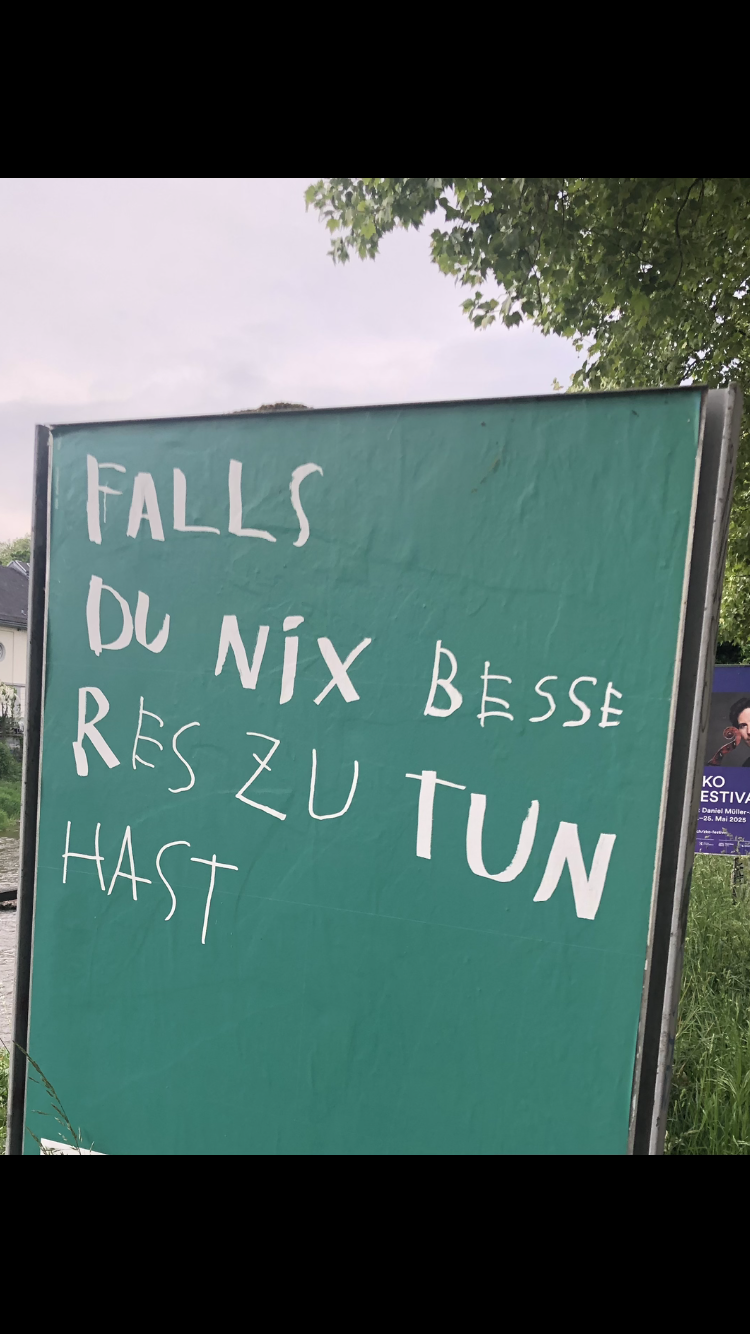 FALLS
DU NIX BESSE
RES ZU TUN
HAST
KO
ESTIVA
Daniel Müller-
-25. Mai 2025